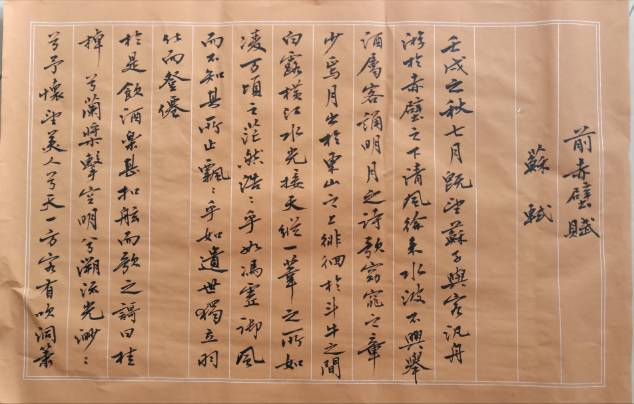 前赤壁賦
蘇軾
壬戌之秋七月既望蘇子與客汎舟
游於赤壁之下清風徐來水波不興舉
酒屬客誦明月之詩歌窈窕之章
少焉月出於東山之上徘徊於斗牛之間
白露橫江水光接天縱一葦之所如
凌万頃之茫然浩〻乎如馮虛御風
而不知其所止飄〻乎如遺世獨立羽
化而登僊
於是飲酒樂甚扣舷而歌之謌曰桂
棹兮蘭槳擊空明兮溯流光渺〻
兮予懷望美人兮天一方客有吹洞簫